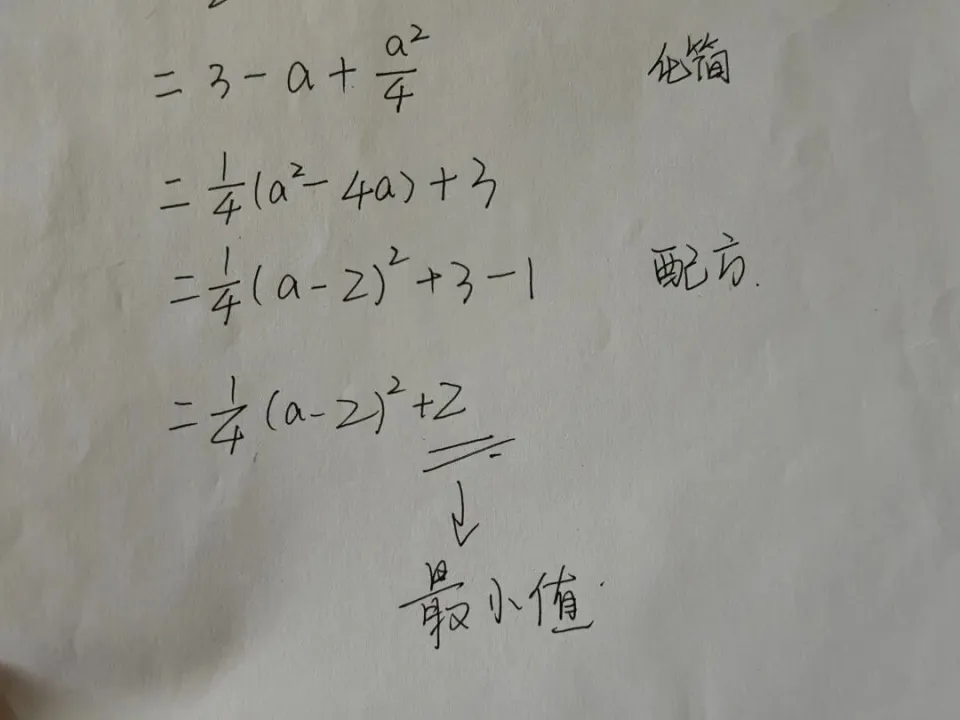 = 3 - a + a²/4 化简
= 1/4(a² - 4a) + 3
= 1/4(a - 2)² + 3 - 1 配方.
= 1/4(a - 2)² + 2
↓
最小值